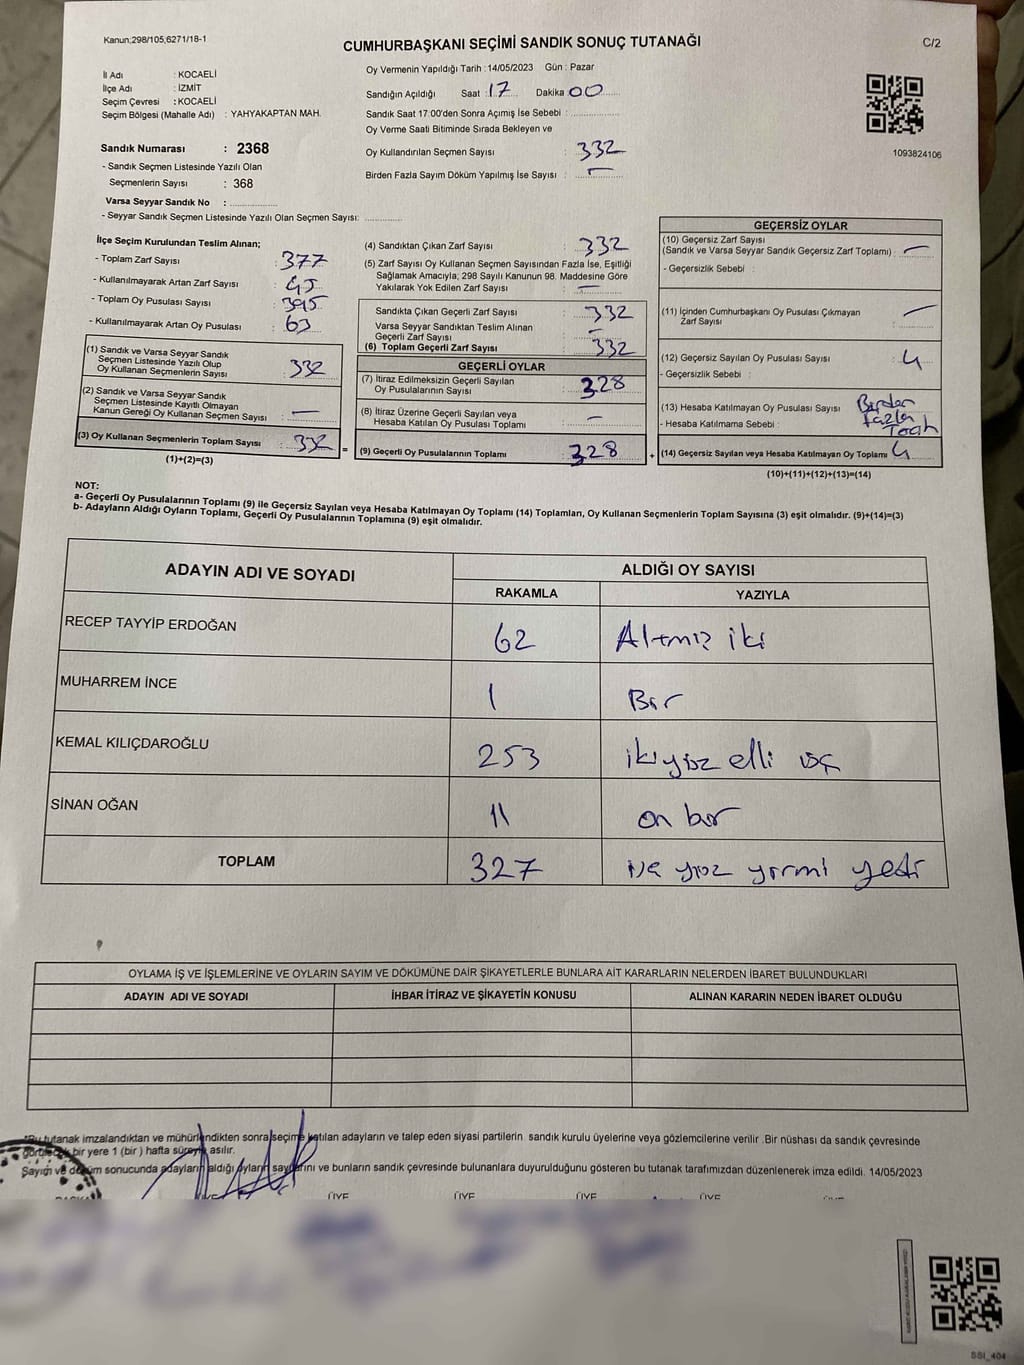 Kanun:298/105,6271/18-1
CUMHURBAŞKANI SEÇİMİ SANDIK SONUÇ TUTANAĞI
C/2
İl Adı : KOCAELİ
İlçe Adı : İZMİT
Seçim Çevresi : KOCAELİ
Seçim Bölgesi (Mahalle Adı) : YAHYAKAPTAN MAH.
Sandık Numarası : 2368
- Sandık Seçmen Listesinde Yazılı Olan
Seçmenlerin Sayısı : 368
Varsa Seyyar Sandık No :
- Seyyar Sandık Seçmen Listesinde Yazılı Olan Seçmen Sayısı:
Oy Vermenin Yapıldığı Tarih : 14/05/2023 Gün : Pazar
Sandığın Açıldığı Saat : 17 Dakika 00
Sandık Saat 17:00'den Sonra Açımış İse Sebebi :
Oy Verme Saati Bitiminde Sırada Bekleyen ve
Oy Kullandırılan Seçmen Sayısı : 332
Birden Fazla Sayım Döküm Yapılmış İse Sayısı : —
1093824106
İlçe Seçim Kurulundan Teslim Alınan;
- Toplam Zarf Sayısı : 377
- Kullanılmayarak Artan Zarf Sayısı : 45
- Toplam Oy Pusulası Sayısı : 395
- Kullanılmayarak Artan Oy Pusulası : 63
(1) Sandık ve Varsa Seyyar Sandık
Seçmen Listesinde Yazılı Olup
Oy Kullanan Seçmenlerin Sayısı : 332
(2) Sandık ve Varsa Seyyar Sandık
Seçmen Listesinde Kayıtlı Olmayan
Kanun Gereği Oy Kullanan Seçmen Sayısı : —
(3) Oy Kullanan Seçmenlerin Toplam Sayısı : 332 =
(1)+(2)=(3)
(4) Sandıktan Çıkan Zarf Sayısı : 332
(5) Zarf Sayısı Oy Kullanan Seçmen Sayısından Fazla İse, Eşitliği
Sağlamak Amacıyla; 298 Sayılı Kanunun 98. Maddesine Göre
Yakılarak Yok Edilen Zarf Sayısı : —
Sandıkta Çıkan Geçerli Zarf Sayısı : 332
Varsa Seyyar Sandıktan Teslim Alınan
Geçerli Zarf Sayısı : —
(6) Toplam Geçerli Zarf Sayısı : 332
GEÇERLİ OYLAR
(7) İtiraz Edilmeksizin Geçerli Sayılan
Oy Pusulalarının Sayısı : 328
(8) İtiraz Üzerine Geçerli Sayılan veya
Hesaba Katılan Oy Pusulası Toplamı : —
(9) Geçerli Oy Pusulalarının Toplamı : 328 +
GEÇERSİZ OYLAR
(10) Geçersiz Zarf Sayısı
(Sandık ve Varsa Seyyar Sandık Geçersiz Zarf Toplamı) : —
- Geçersizlik Sebebi :
(11) İçinden Cumhurbaşkanı Oy Pusulası Çıkmayan
Zarf Sayısı : —
(12) Geçersiz Sayılan Oy Pusulası Sayısı : 4
- Geçersizlik Sebebi :
(13) Hesaba Katılmayan Oy Pusulası Sayısı : Birden
- Hesaba Katılmama Sebebi : fazla
(14) Geçersiz Sayılan veya Hesaba Katılmayan Oy Toplamı 4
(10)+(11)+(12)+(13)=(14)
NOT:
a- Geçerli Oy Pusulalarının Toplamı (9) ile Geçersiz Sayılan veya Hesaba Katılmayan Oy Toplamı (14) Toplamları, Oy Kullanan Seçmenlerin Toplam Sayısına (3) eşit olmalıdır. (9)+(14)=(3)
b- Adayların Aldığı Oyların Toplamı, Geçerli Oy Pusulalarının Toplamına (9) eşit olmalıdır.
ADAYIN ADI VE SOYADI
ALDIĞI OY SAYISI
RAKAMLA YAZIYLA
RECEP TAYYİP ERDOĞAN 62 Altmiş iki
MUHARREM İNCE 1 Bir
KEMAL KILIÇDAROĞLU 253 ikiyüz elli üç
SİNAN OĞAN 11 on bir
TOPLAM 327 yüz yirmi yedi
OYLAMA İŞ VE İŞLEMLERİNE VE OYLARIN SAYIM VE DÖKÜMÜNE DAİR ŞİKAYETLERLE BUNLARA AİT KARARLARIN NELERDEN İBARET BULUNDUKLARI
ADAYIN ADI VE SOYADI İHBAR İTİRAZ VE ŞİKAYETİN KONUSU ALINAN KARARIN NEDEN İBARET OLDUĞU
*Bu tutanak imzalandıktan ve mühürlendikten sonra seçime katılan adayların ve talep eden siyasi partilerin sandık kurulu üyelerine veya gözlemcilerine verilir. Bir nüshası da sandık çevresinde
görülecek bir yere 1 (bir) hafta süreyle asılır.
Sayım ve döküm sonucunda adayların aldığı oyların sayılarını ve bunların sandık çevresinde bulunanlara duyurulduğunu gösteren bu tutanak tarafımızdan düzenlenerek imza edildi. 14/05/2023
ÜYE ÜYE ÜYE ÜYE
SSI_404